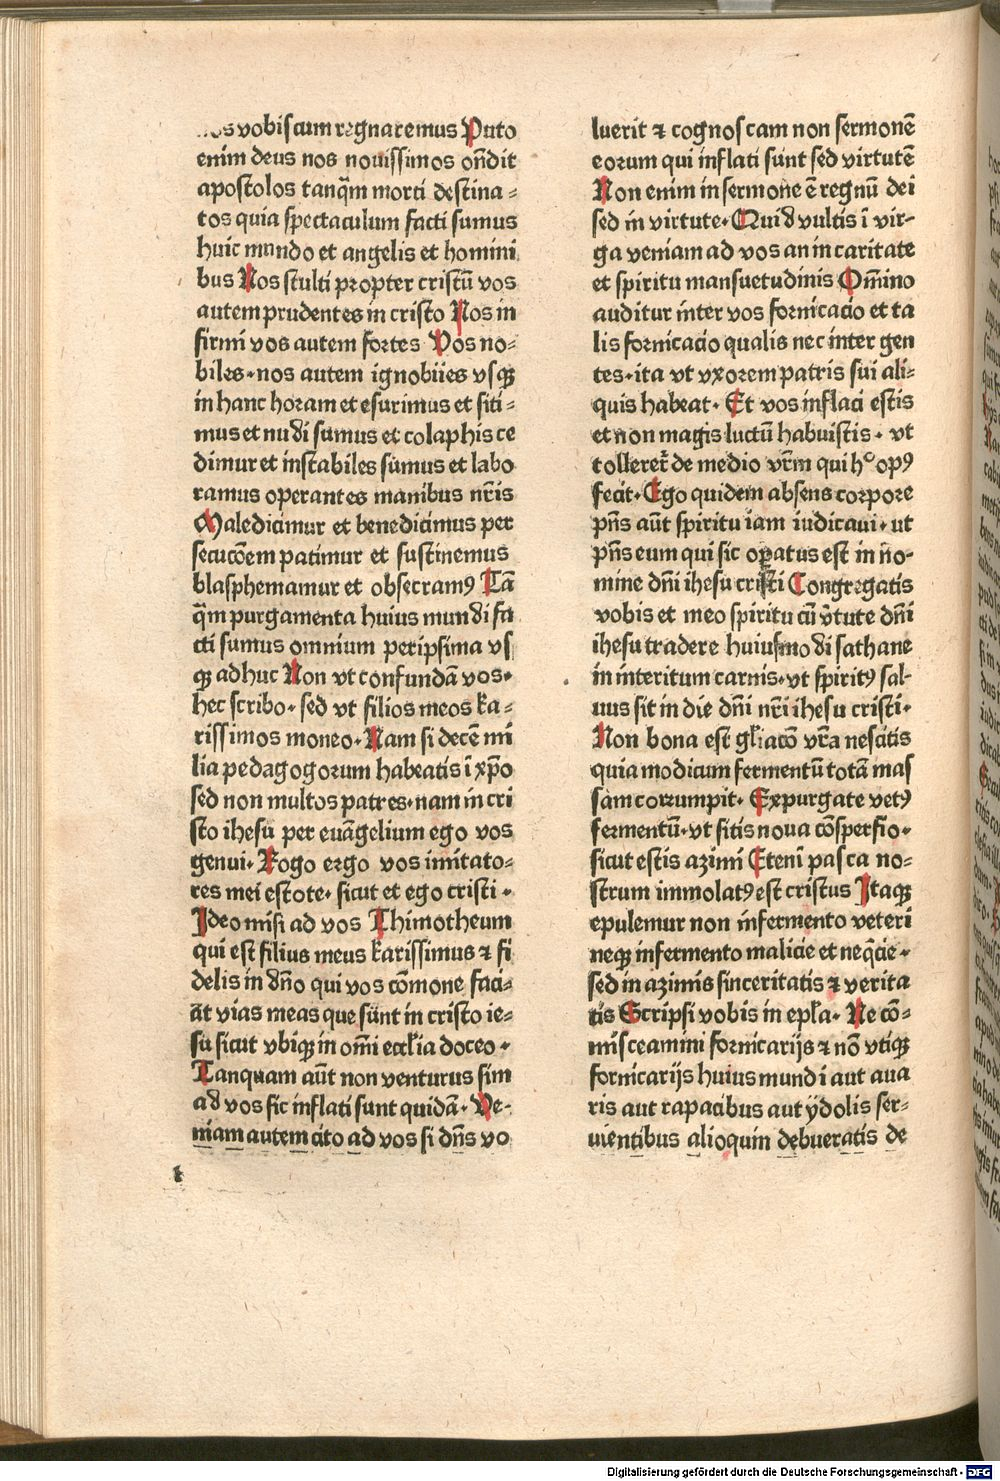 nos vobiscum regnaremus Puto
enim deus nos nouissimos oñdit
apostolos tanq̃m morti destina⸗
tos quia spectaculum facti sumus
huic mundo et angelis et homini
bus Nos stulti propter cristū vos
autem prudentes in cristo Nos in
firmi vos autem fortes Vos no⸗
biles·nos autem ignobiles vsqꝫ
in hanc horam et esurimus et siti⸗
mus et nudi sumus et colaphis ce
dimur et instabiles sumus et labo
ramus operantes manibus nr̃is
Maledicimur et benedicimus per
secucõem patimur et sustinemus
blasphemamur et obsecramꝰ Tã
q̃m purgamenta huius mundi fa
cti sumus omnium peripsima vs
qꝫ adhuc Non vt confundã vos·
hec scribo· sed vt filios meos ka⸗
rissimos moneo·Nam si decẽ mi
lia pedagogorum habeatis ĩ xp̃o
sed non multos patres·nam in cri
sto ihesu per euãgelium ego vos
genui· Rogo ergo vos imitato⸗
res mei estote· sicut et ego cristi·
Ideo misi ad vos Thimotheum
qui est filius meus karissimus ⁊ fi
delis in dño qui vos cõmone faci⸗
ãt vias meas que sũnt in cristo ie⸗
su sicut vbiqꝫ in om̃i eccl̃ia doceo·
Tanquam aũt non venturus sim
ad vos sic inflati sunt quidã· Ve⸗
niam autem cito ad vos si dñs vo
luerit ⁊ cognoscam non sermonẽ
eorum qui inflati sunt sed virtutẽ
Non enim in sermone ẽ regnũ dei
sed in virtute· Quid vultis ĩ vir⸗
ga veniam ad vos an in caritate
et spiritu mansuetudinis Om̃ino
auditur inter vos fornicacio et ta
lis fornicacio qualis nec inter gen
tes·ita vt vxorem patris sui ali⸗
quis habeat· Et vos inflaci estis
et non magis luctũ habuistis· vt
tolleret̃ de medio vr̃m qui hᵒ opꝰ
fecit· Ego quidem absens corpore
pñs aũt spiritu iam iudicaui· ut
pñs eum qui sic operatus est in no⸗
mine dñi ihesu cristi Congregatis
vobis et meo spiritu cũ ṽtute dñi
ihesu tradere huiusmodi sathane
in interitum carnis·vt spiritꝰ sal⸗
uus sit in die dñi nr̃i ihesu cristi·
Non bona est gl̃iacõ vr̃a nescitis
quia modicum fermentũ totã mas
sam corrumpit· Expurgate vetꝰ
fermentũ·vt sitis noua cõspersio·
sicut estis azimi Eteni pasca no⸗
strum immolatꝰ est cristus Itaqꝫ
epulemur non infermento veteri
neqꝫ infermento malicie et neq̃cie·
sed in azimis sinceritatis ⁊ verita
tis Scripsi vobis in epl̃a· Ne cõ⸗
misceamini fornicarijs ⁊ nõ vtiqꝫ
fornicarijs huius mundi aut aua
ris aut rapacibus aut ydolis ser⸗
uientibus alioquin debueratis de
Digitalisierung gefördert durch die Deutsche Forschungsgemeinschaft - DFG